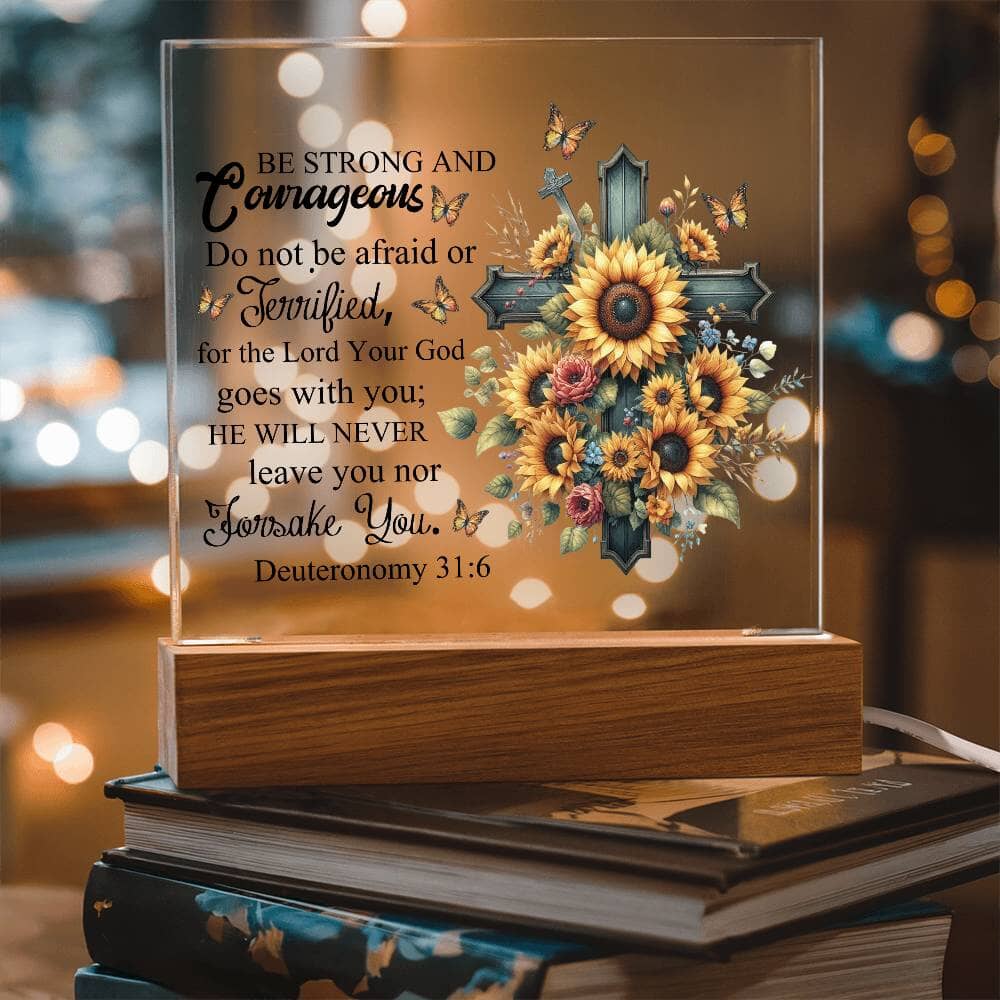 BE STRONG AND
Courageous
Do not be afraid or
Terrified,
for the Lord Your God
goes with you;
HE WILL NEVER
leave you nor
Forsake You.
Deuteronomy 31:6